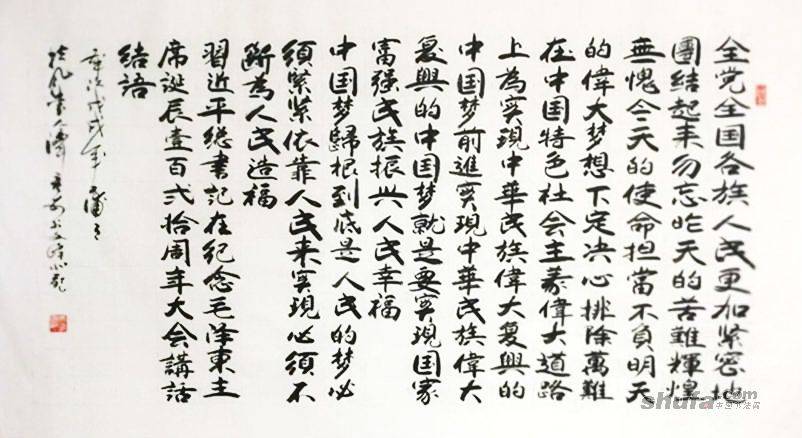 全党全国各族人民更加紧密地
團结起来勿忘昨天的苦難輝煌
無愧今天的使命担當不負明天
的偉大梦想下定决心排除萬難
在中国特色社会主義偉大道路
上為实现中華民族偉大复興的
中国梦前進实现中華民族偉大
复興的中国梦就是要实现国家
富强民族振兴人民幸福
中国梦歸根到底是人民的梦必
须紧紧依靠人民来实现必须不
斷為人民造福
習近平總書記在纪念毛泽東主
席诞辰壹百弍拾周年大会講話
结语
戊戌年
shufa.com
中国书法网